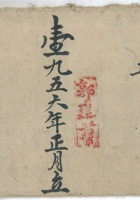 壹九五六年正月立